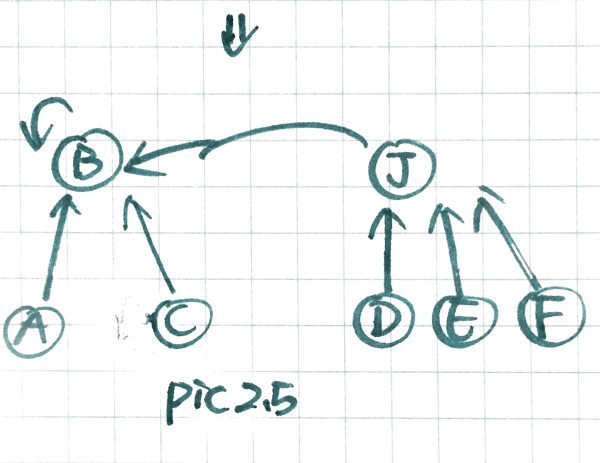 B J
A C D E F
pic2.5